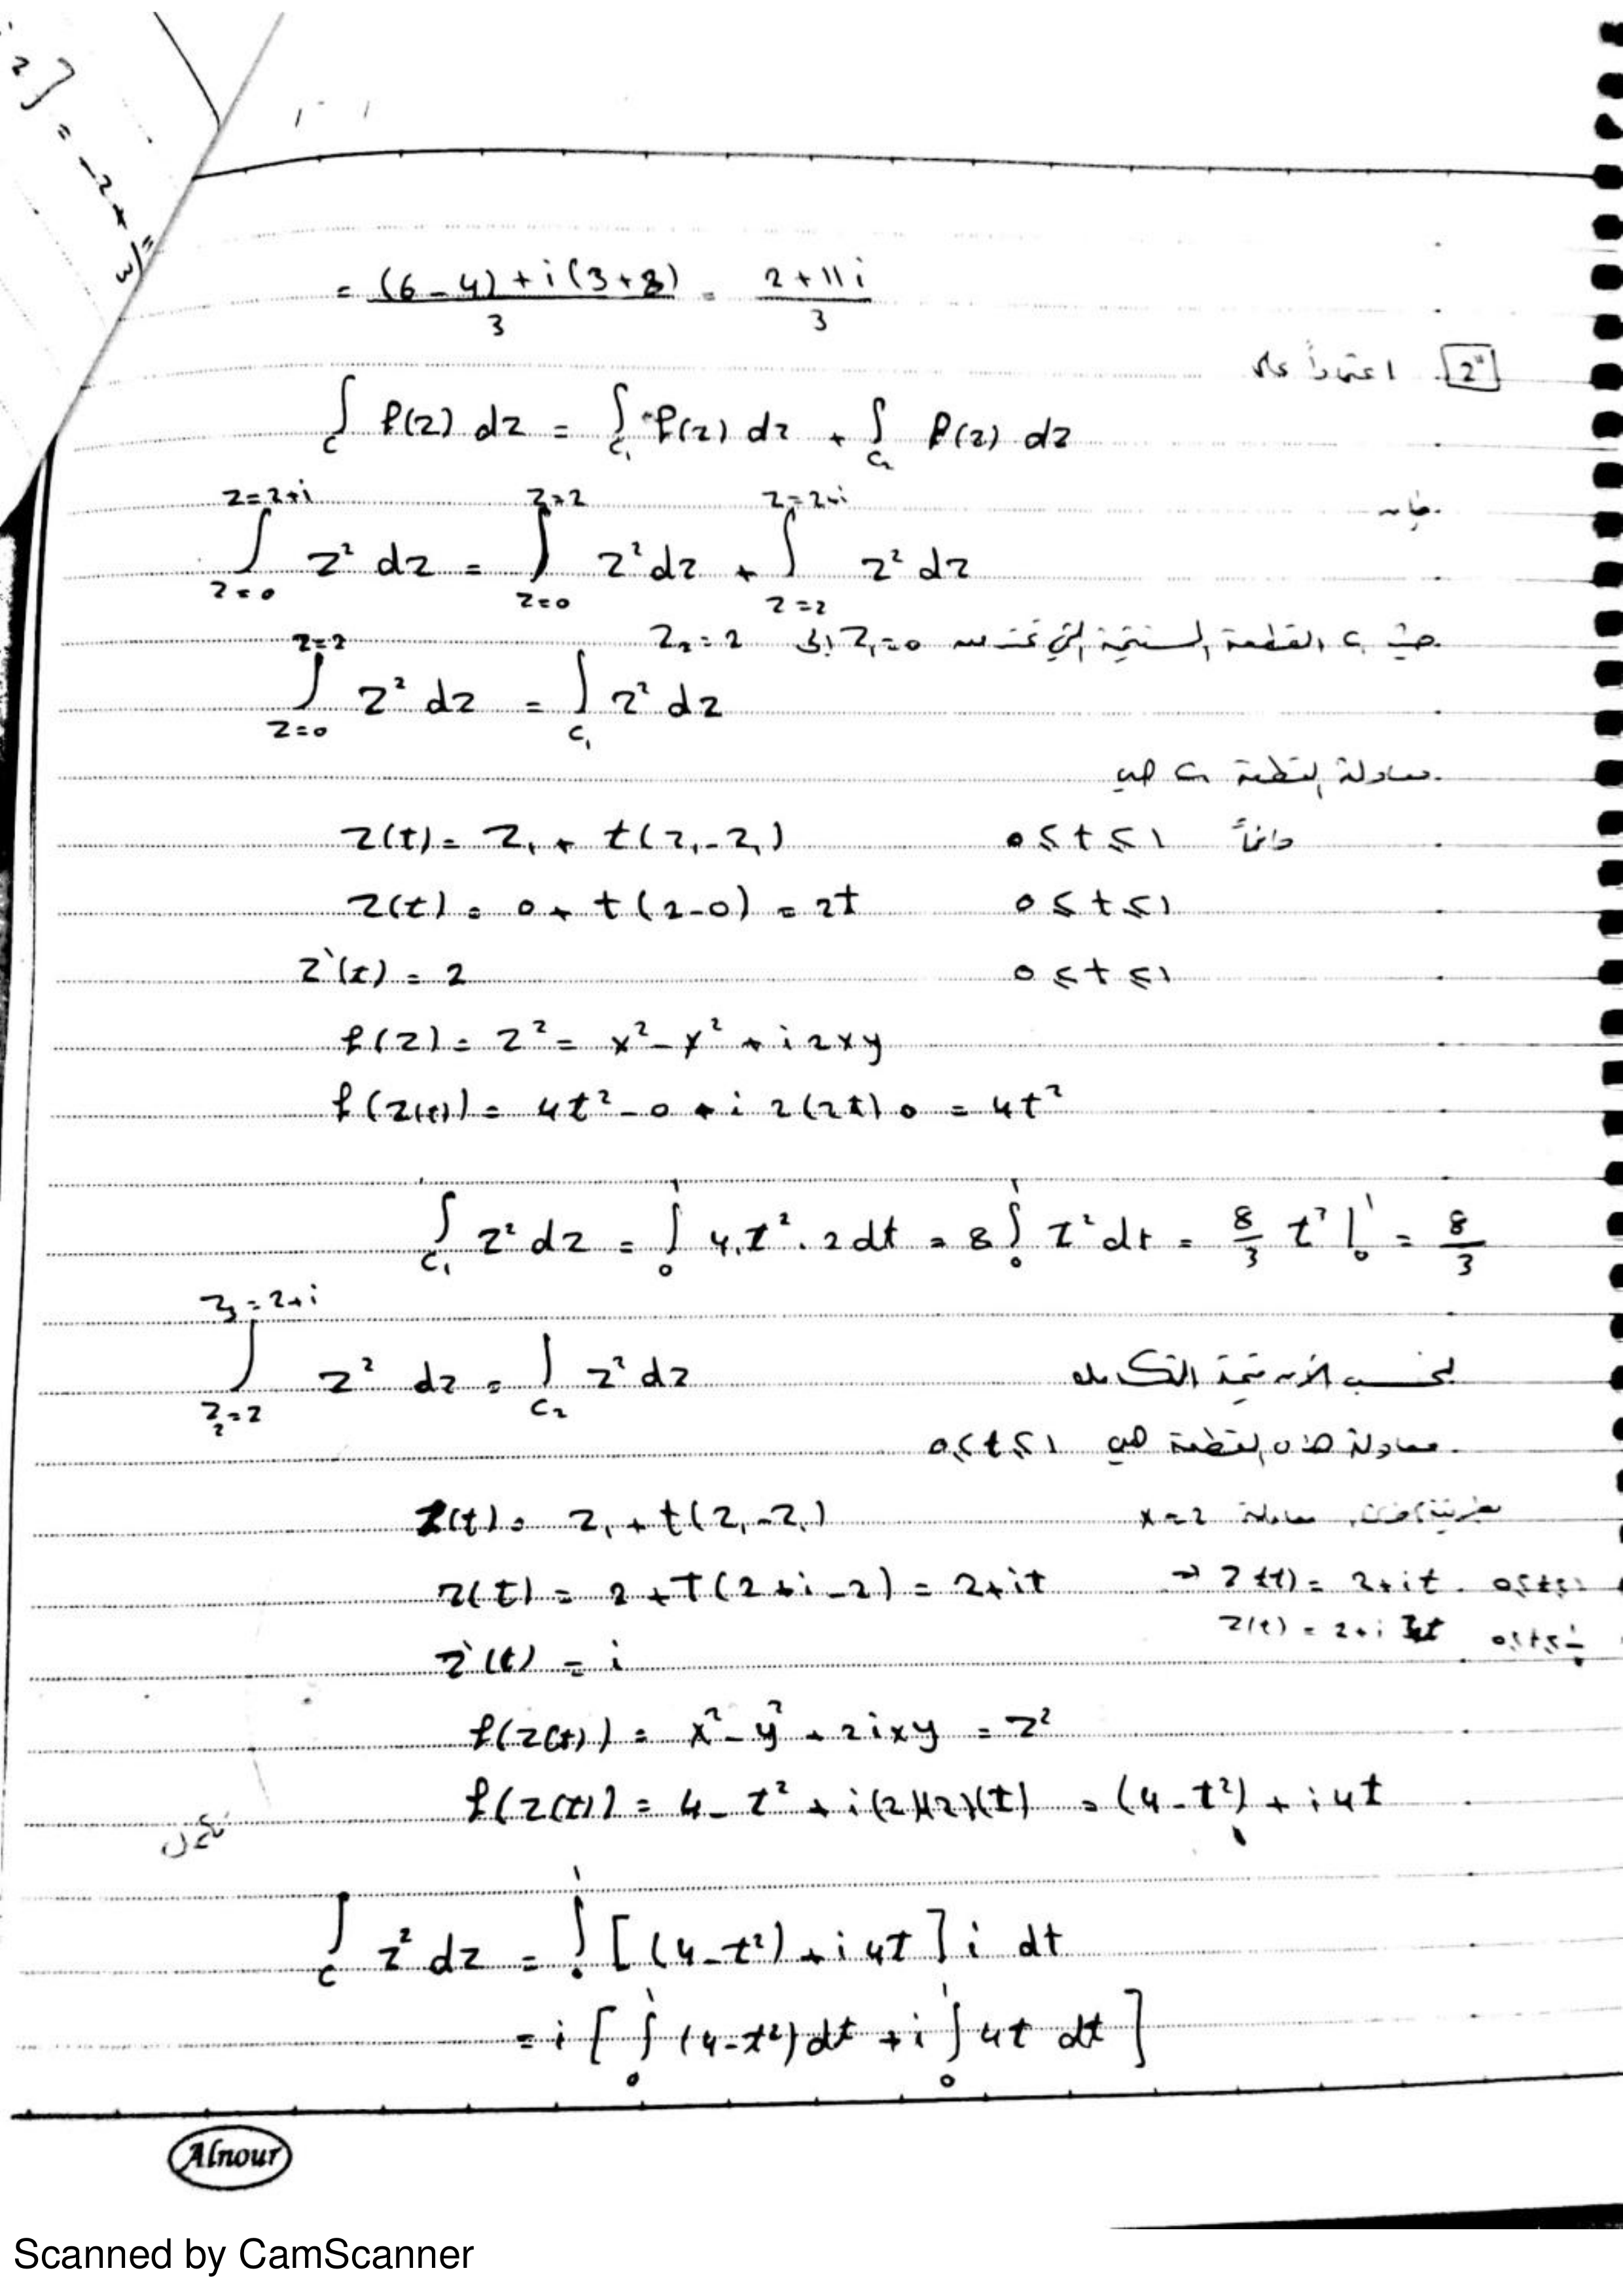 = (6-4)+i(3+8) / 3 = 2+11i / 3
2" اعتماداً على
∫_C f(z) dz = ∫_C₁ f(z) dz + ∫_C₂ f(z) dz
فإنه
∫_{z=0}^{z=2+i} z² dz = ∫_{z=0}^{z=2} z² dz + ∫_{z=2}^{z=2+i} z² dz
حيث C₁ القطعة المستقيمة التي تمتد من z₁=0 إلى z₂=2
∫_{z=0}^{z=2} z² dz = ∫_C₁ z² dz
معادلة القطعة C₁ هي
z(t) = z₁ + t(z₂-z₁) 0≤t≤1 دائماً
z(t) = 0 + t(2-0) = 2t 0≤t≤1
z`(t) = 2 0≤t≤1
f(z) = z² = x²-y² + i2xy
f(z(t)) = 4t²-0 + i 2(2t)0 = 4t²
∫_C₁ z² dz = ∫_0^1 4.t².2dt = 8∫_0^1 t² dt = 8/3 t³ |_0^1 = 8/3
∫_{z₂=2}^{z₃=2+i} z² dz = ∫_C₂ z² dz لنحسب الآن قيمة التكامل
معادلة هذه القطعة هي 0≤t≤1
z(t) = z₁ + t(z₂-z₁) بطريقة أخرى معادلة x=2
z(t) = 2 + t(2+i-2) = 2+it ⇒ z(t) = 2+it 0≤t≤1
z(t) = 2+i
z`(t) = i
f(z(t)) = x²-y²+2ixy = z²
f(z(t)) = 4-t²+i(2)(2)(t) = (4-t²)+i4t
∫_C z² dz = ∫_0^1 [(4-t²)+i4t] i dt
= i [∫_0^1 (4-t²)dt + i∫_0^1 4t dt]
Alnour
Scanned by CamScanner